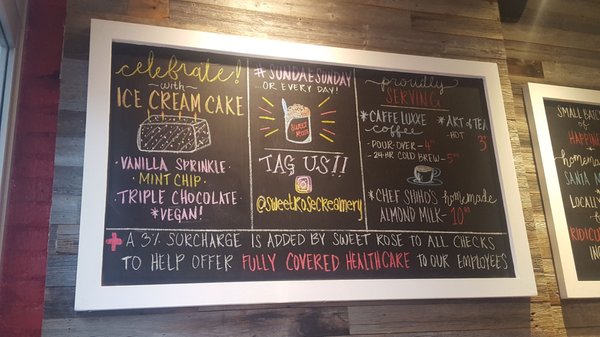 celebrate!
with
ICE CREAM CAKE
VANILLA SPRINKLE
MINT CHIP
TRIPLE CHOCOLATE
*VEGAN!
#SUNDAESUNDAY
OR EVERY DAY!
SWEET
ROSE
TAG US!!
@sweetrosecreamery
proudly
SERVING
*CAFFE LUXXE
coffee
POUR-OVER-
24HR COLD BREW-
*ART of TEA
HOT
*CHEF SHIHO'S homemade
ALMOND MILK-
+A 3% SURCHARGE IS ADDED BY SWEET ROSE TO ALL CHECKS
TO HELP OFFER FULLY COVERED HEALTHCARE TO OUR EMPLOYEES
SMALL BATC
of
HAPPINE
homemad
SANTA M
LOCALLY
RIDICU